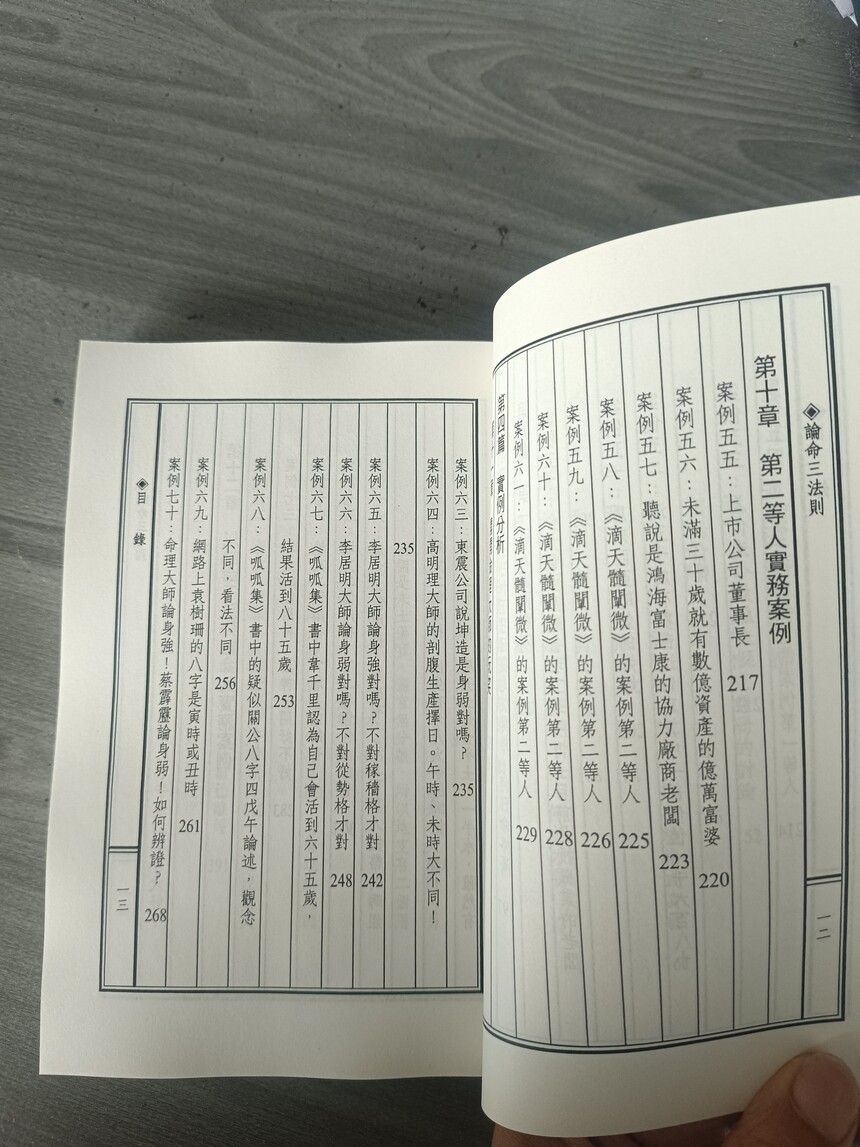 ◈論命三法則
第十章　第二等人實務案例
案例五五：上市公司董事長 217
案例五六：未滿三十歲就有數億資產的億萬富婆 220
案例五七：聽說是鴻海富士康的協力廠商老闆 223
案例五八：《滴天髓闡微》的案例第二等人 225
案例五九：《滴天髓闡微》的案例第二等人 226
案例六十：《滴天髓闡微》的案例第二等人 228
案例六一：《滴天髓闡微》的案例第二等人 229
第四篇　實例分析
一二
案例六三：東震公司說坤造是身弱對嗎？ 235
案例六四：高明理大師的剖腹生產擇日。午時、未時大不同！
235
案例六五：李居明大師論身強對嗎？不對稼穡格才對 242
案例六六：李居明大師論身弱對嗎？不對從勢格才對 248
案例六七：《呱呱集》書中韋千里認為自己會活到六十五歲，
結果活到八十五歲 253
案例六八：《呱呱集》書中的疑似關公八字四戊午論述，觀念
不同，看法不同 256
案例六九：網路上袁樹珊的八字是寅時或丑時 261
案例七十：命理大師論身強！蔡霹靂論身弱！如何辨證？ 268
◈目　錄
一三